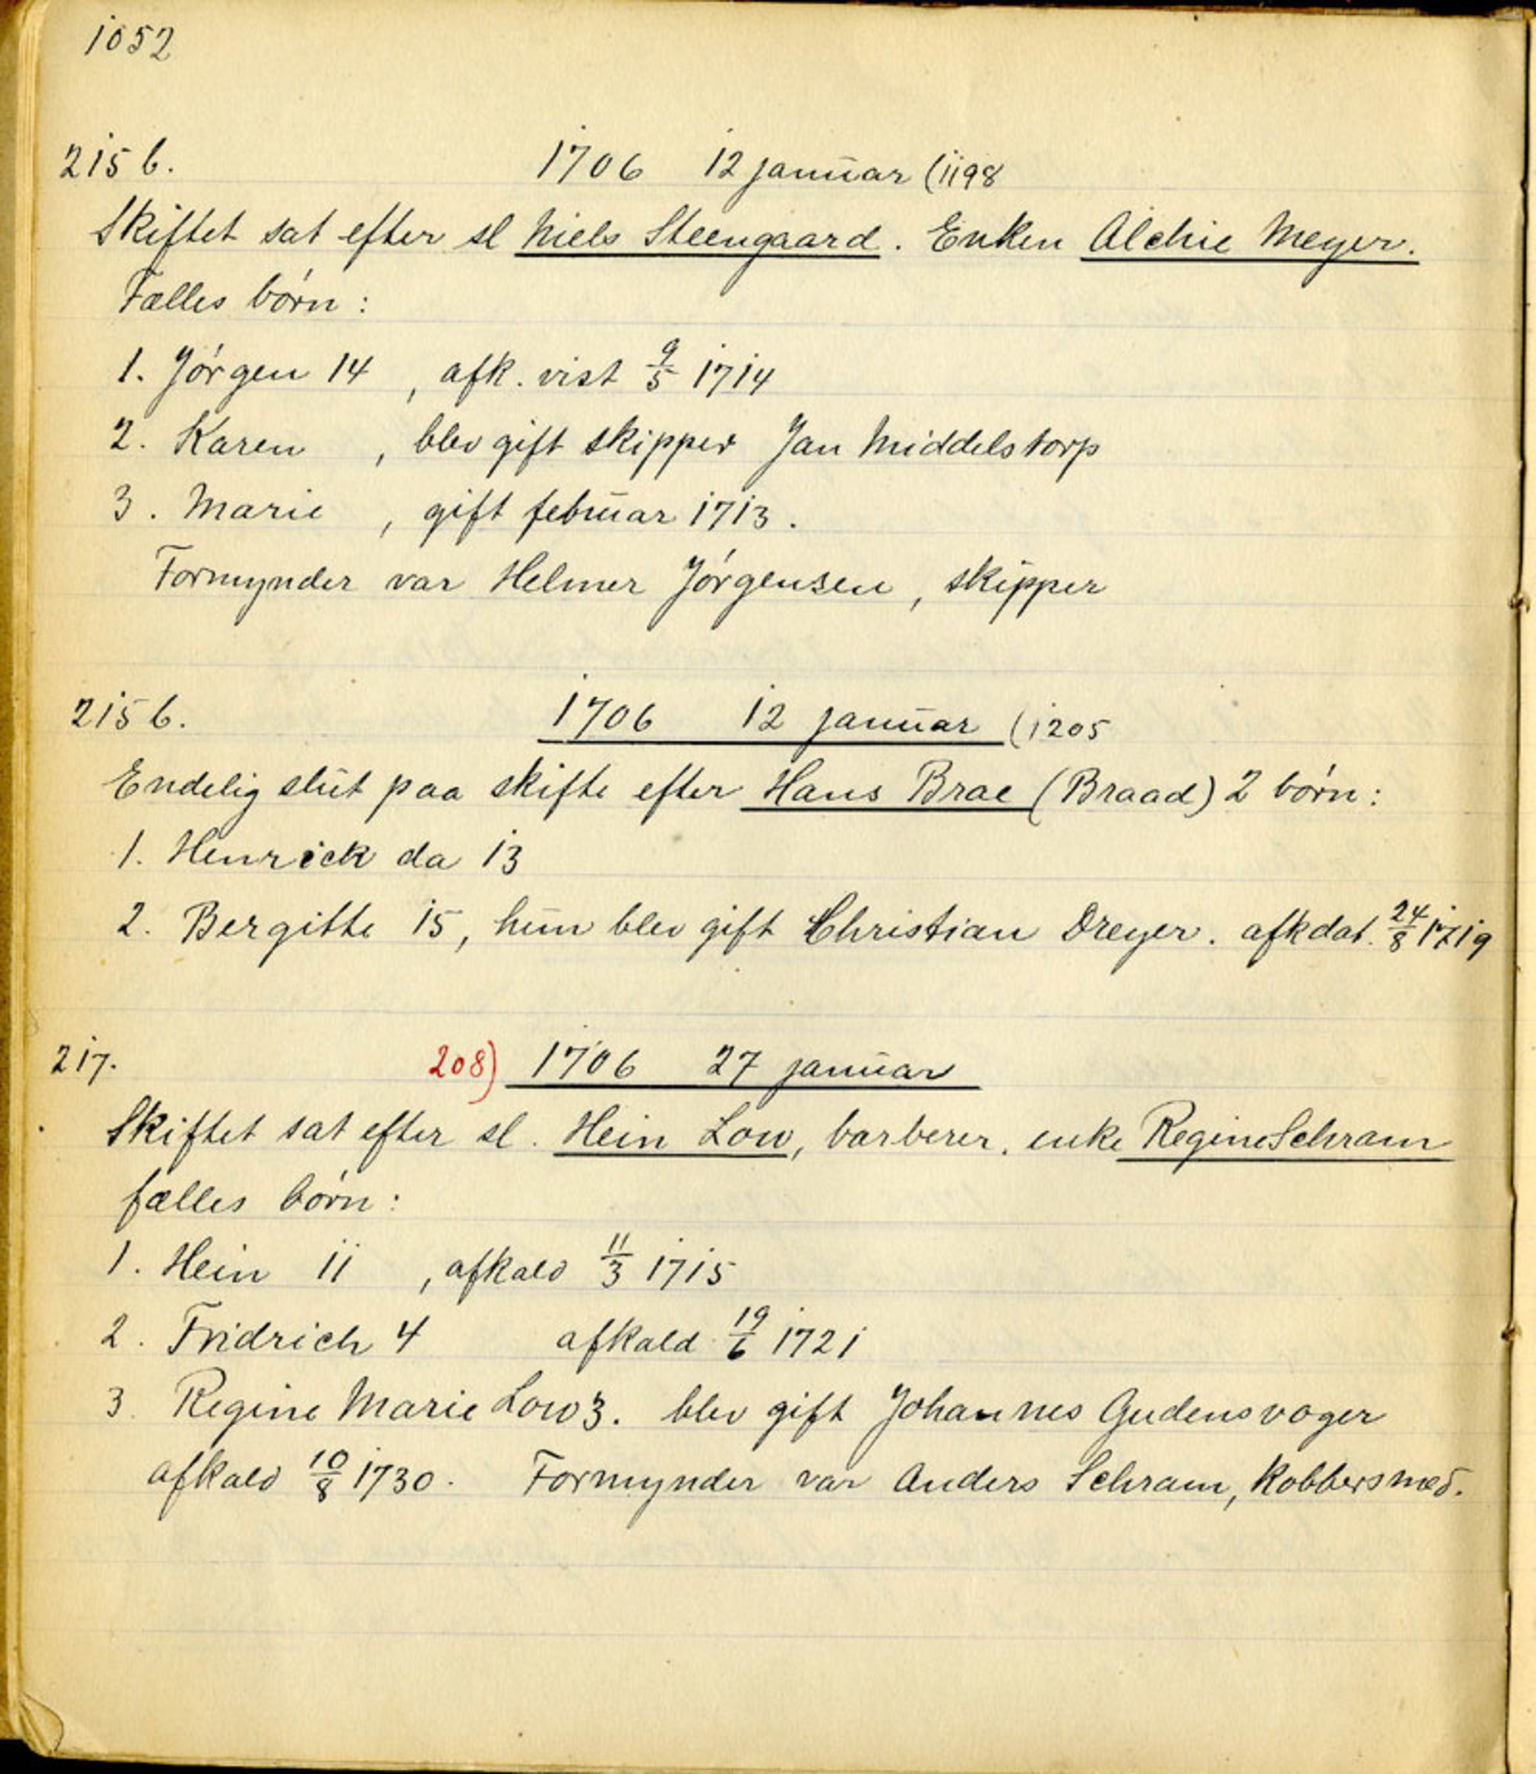 1052
215 b. 1706 12 januar (1198
Skiftet sat efter sl Niels Steengaard. Enken Alchie Meyer.
Fælles børn:
1. Jørgen 14, afk. vist 9/5 1714
2. Karen, blev gift skipper Jan Middelstorp
3. Marie, gift februar 1713.
Formynder var Helmer Jørgensen, skipper
215 b. 1706 12 januar (1205
Endelig slut paa skifte efter Hans Brae (Braad) 2 børn:
1. Henrick da 13
2. Bergitte 15, hun blev gift Christian Dreyer. afkdat. 24/8 1719
217. 208) 1706 27 januar
Skiftet sat efter sl. Hein Low, barberer. enke Regine Schram
fælles børn:
1. Hein 11, afkald 11/3 1715
2. Fridrich 4 afkald 19/6 1721
3. Regine Marie Low 3. blev gift Johannes Gudensvoger
afkald 10/8 1730. Formynder var Anders Schram, Kobbersmed.